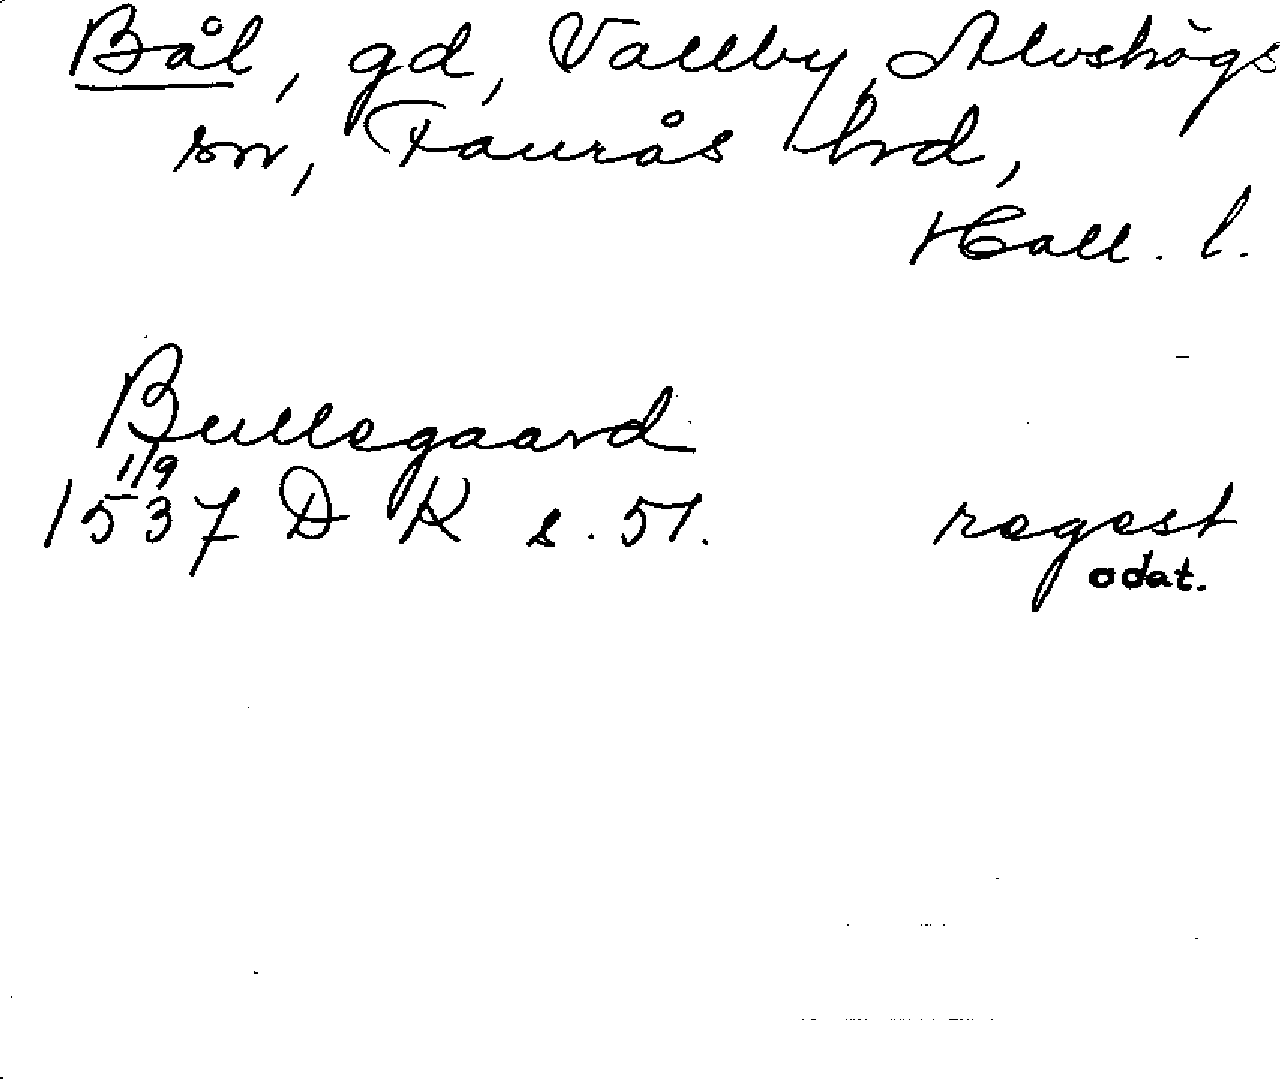 Bål, gd, Vallby, Alvshögs
sn, Faurås hrd,
Hall. l.
Bullegaard
1/9
1537 D K s. 51. regest
odat.